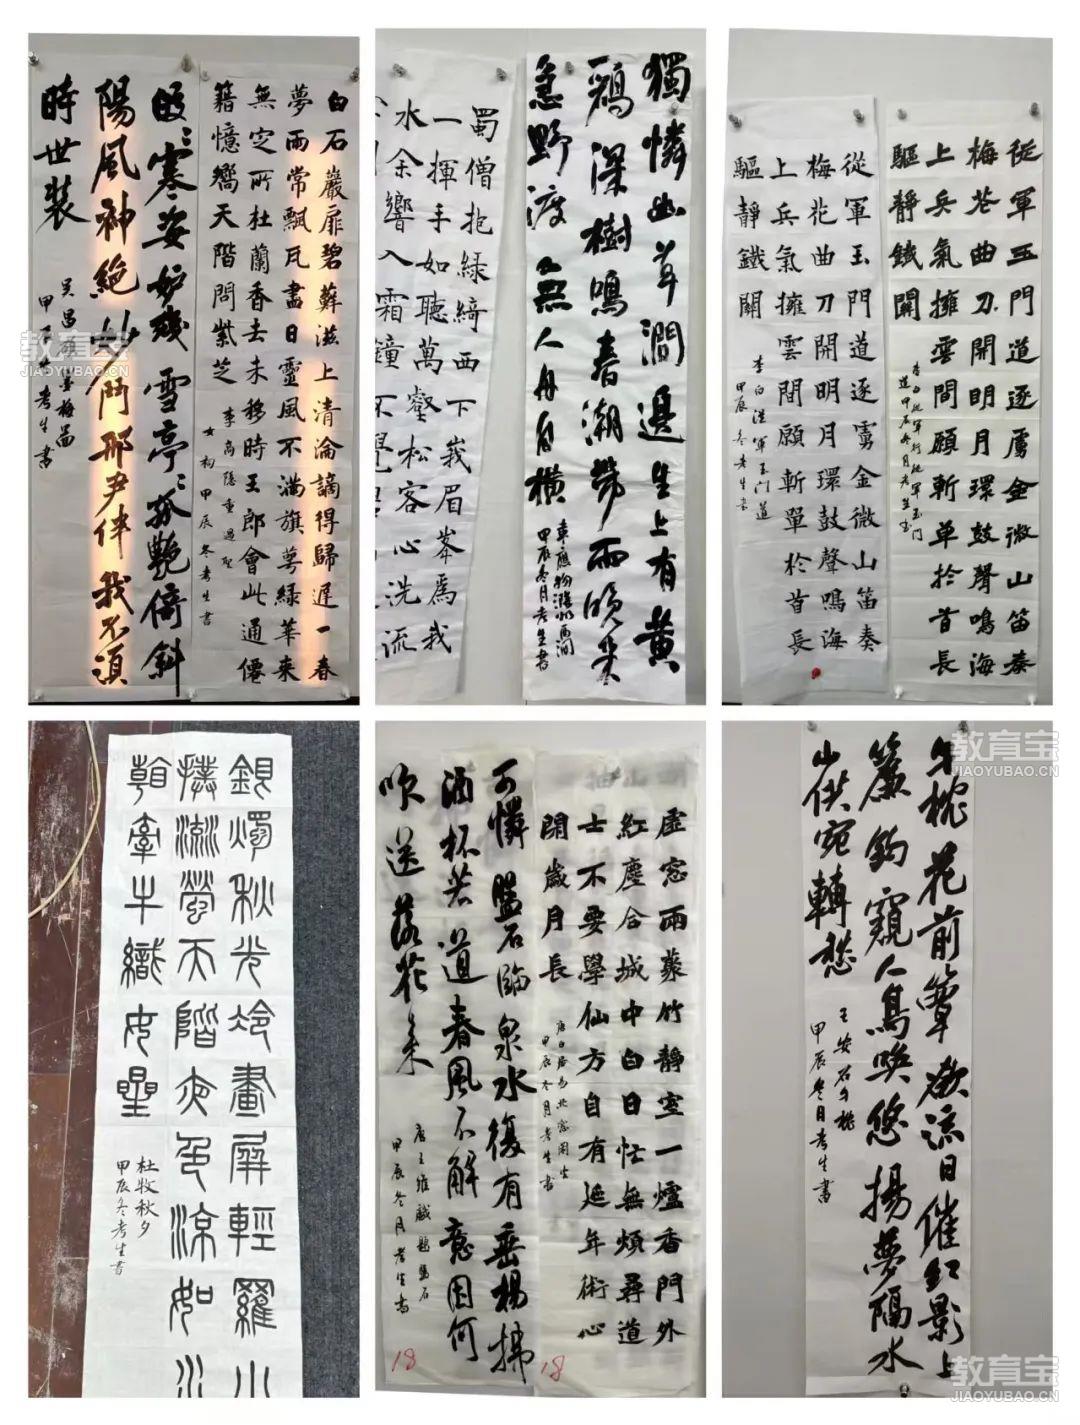 白石巖扉碧蘚滋上清淪謫得歸遲一春
夢雨常飄瓦盡日靈風不滿旗萼綠華來
無定所杜蘭香去未移時王郎會此通僊
籍憶嚮天階問紫芝
李商隱重過聖
女祠甲辰冬考生書
皎皎寒姿妒殘雪亭亭孤艷倚斜
陽風神絕妙鬥那尹伴我不須
時世裝
吳昌碩墨梅圖
甲辰考生書
獨憐幽草澗邊生上有黃
鸝深樹鳴春潮帶雨晚來
急野渡無人舟自橫
韋應物滁州西澗
甲辰冬月考生書
蜀僧抱綠綺西下峩眉峯爲我
一揮手如聽萬壑松客心洗流
水余響入霜鐘不覺
從軍玉門道逐虜金微山笛奏
梅花曲刀開明月環鼓聲鳴海
上兵氣擁雲間願斬單於首長
驅靜鐵關
李白從軍行從軍玉門
道甲辰冬月考生書
從軍玉門道逐虜金微山笛奏
梅花曲刀開明月環鼓聲鳴海
上兵氣擁雲間願斬單於首長
驅靜鐵關
李白從軍玉门道
甲辰冬考生書
銀燭秋光冷畫屏輕羅小
撲流螢天階夜色涼如水
看牽牛織女星
杜牧秋夕
甲辰冬考生書
虛窓雨蘂竹靜室一爐香門外
紅塵合城中白日忙無煩尋道
士不要學仙方自有延年術心
閑歲月長
唐白居易北窓閑坐
甲辰冬月考生書
18
可憐盤石臨泉水復有垂楊拂
酒杯若道春風不解意因何
吹送落花來
唐王維戲題盤石
甲辰冬月考生書
18
午枕花前簟欲流日催紅影上
簾鉤窺人鳥喚悠揚夢隔水
山供宛轉愁
王安石午枕
甲辰冬月考生書
教育宝
JIAOYUBAO.CN
教育宝
JIAOYUBAO.CN
教育宝
JIAOYUBAO.CN